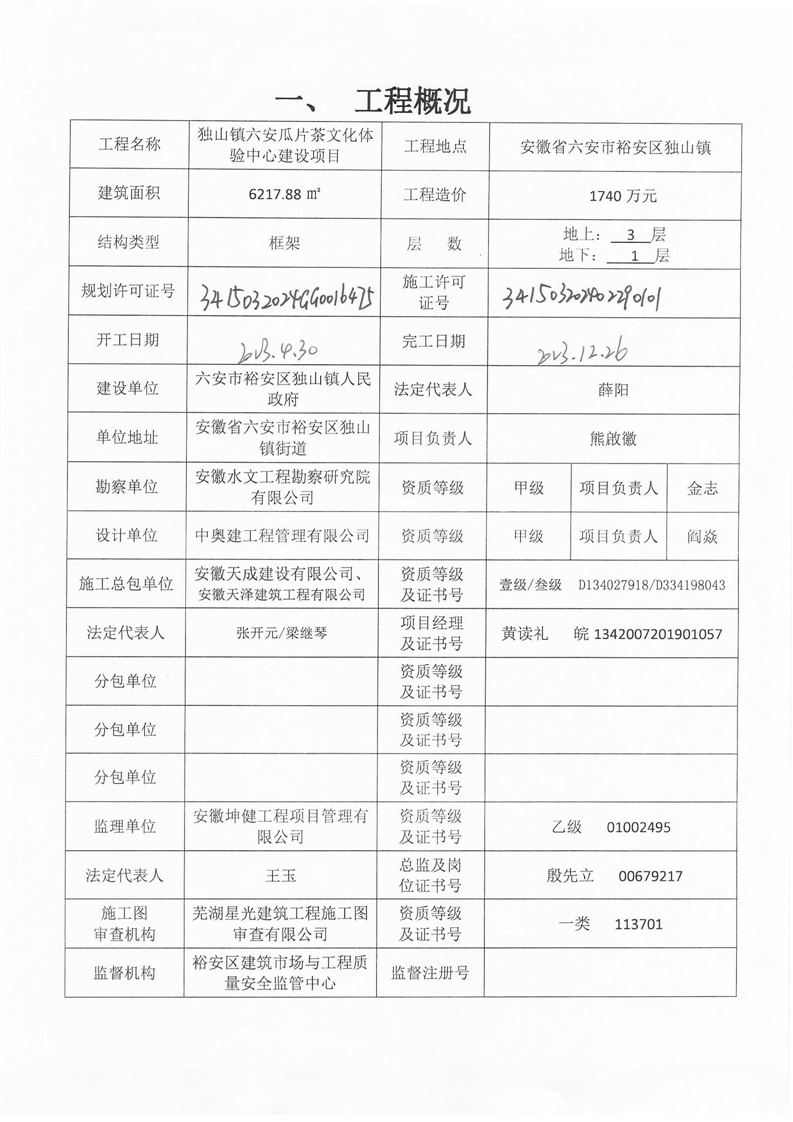 一、 工程概况
工程名称 独山镇六安瓜片茶文化体验中心建设项目 工程地点 安徽省六安市裕安区独山镇
建筑面积 6217.88 ㎡ 工程造价 1740 万元
结构类型 框架 层 数 地上: 3 层 地下: 1 层
规划许可证号 3415032024GG0016475 施工许可证号 341503202402290101
开工日期 2023.4.30 完工日期 2023.12.26
建设单位 六安市裕安区独山镇人民政府 法定代表人 薛阳
单位地址 安徽省六安市裕安区独山镇街道 项目负责人 熊啟徽
勘察单位 安徽水文工程勘察研究院有限公司 资质等级 甲级 项目负责人 金志
设计单位 中奥建工程管理有限公司 资质等级 甲级 项目负责人 阎焱
施工总包单位 安徽天成建设有限公司、安徽天泽建筑工程有限公司 资质等级及证书号 壹级/叁级 D134027918/D334198043
法定代表人 张开元/梁继琴 项目经理及证书号 黄读礼 皖 1342007201901057
分包单位 资质等级及证书号
分包单位 资质等级及证书号
分包单位 资质等级及证书号
监理单位 安徽坤健工程项目管理有限公司 资质等级及证书号 乙级 01002495
法定代表人 王玉 总监及岗位证书号 殷先立 00679217
施工图审查机构 芜湖星光建筑工程施工图审查有限公司 资质等级及证书号 一类 113701
监督机构 裕安区建筑市场与工程质量安全监管中心 监督注册号